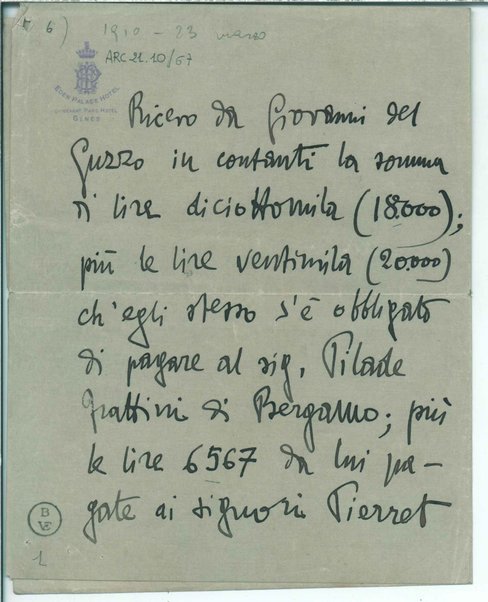 6) 1910 - 23 marzo
ARC-21.10/67
EDEN PALACE HOTEL
GÊNES
Ricevo da Giovanni del
Guzzo in contanti la somma
di lire diciottomila (18.000);
più le lire ventimila (20.000)
ch'egli stesso s'è obbligato
di pagare al sig. Pilade
Frattini di Bergamo; più
le lire 6567 da lui pa-
gate ai signori Pierret
B
VE
1